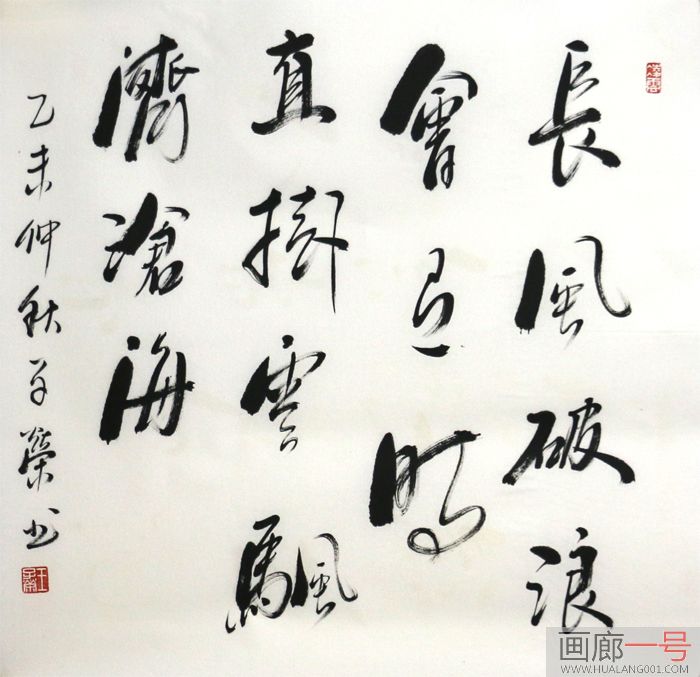 長風破浪
會有時
直掛雲颿
濟滄海
乙未仲秋子榮书
画廊一号
WWW.HUALANG001.COM